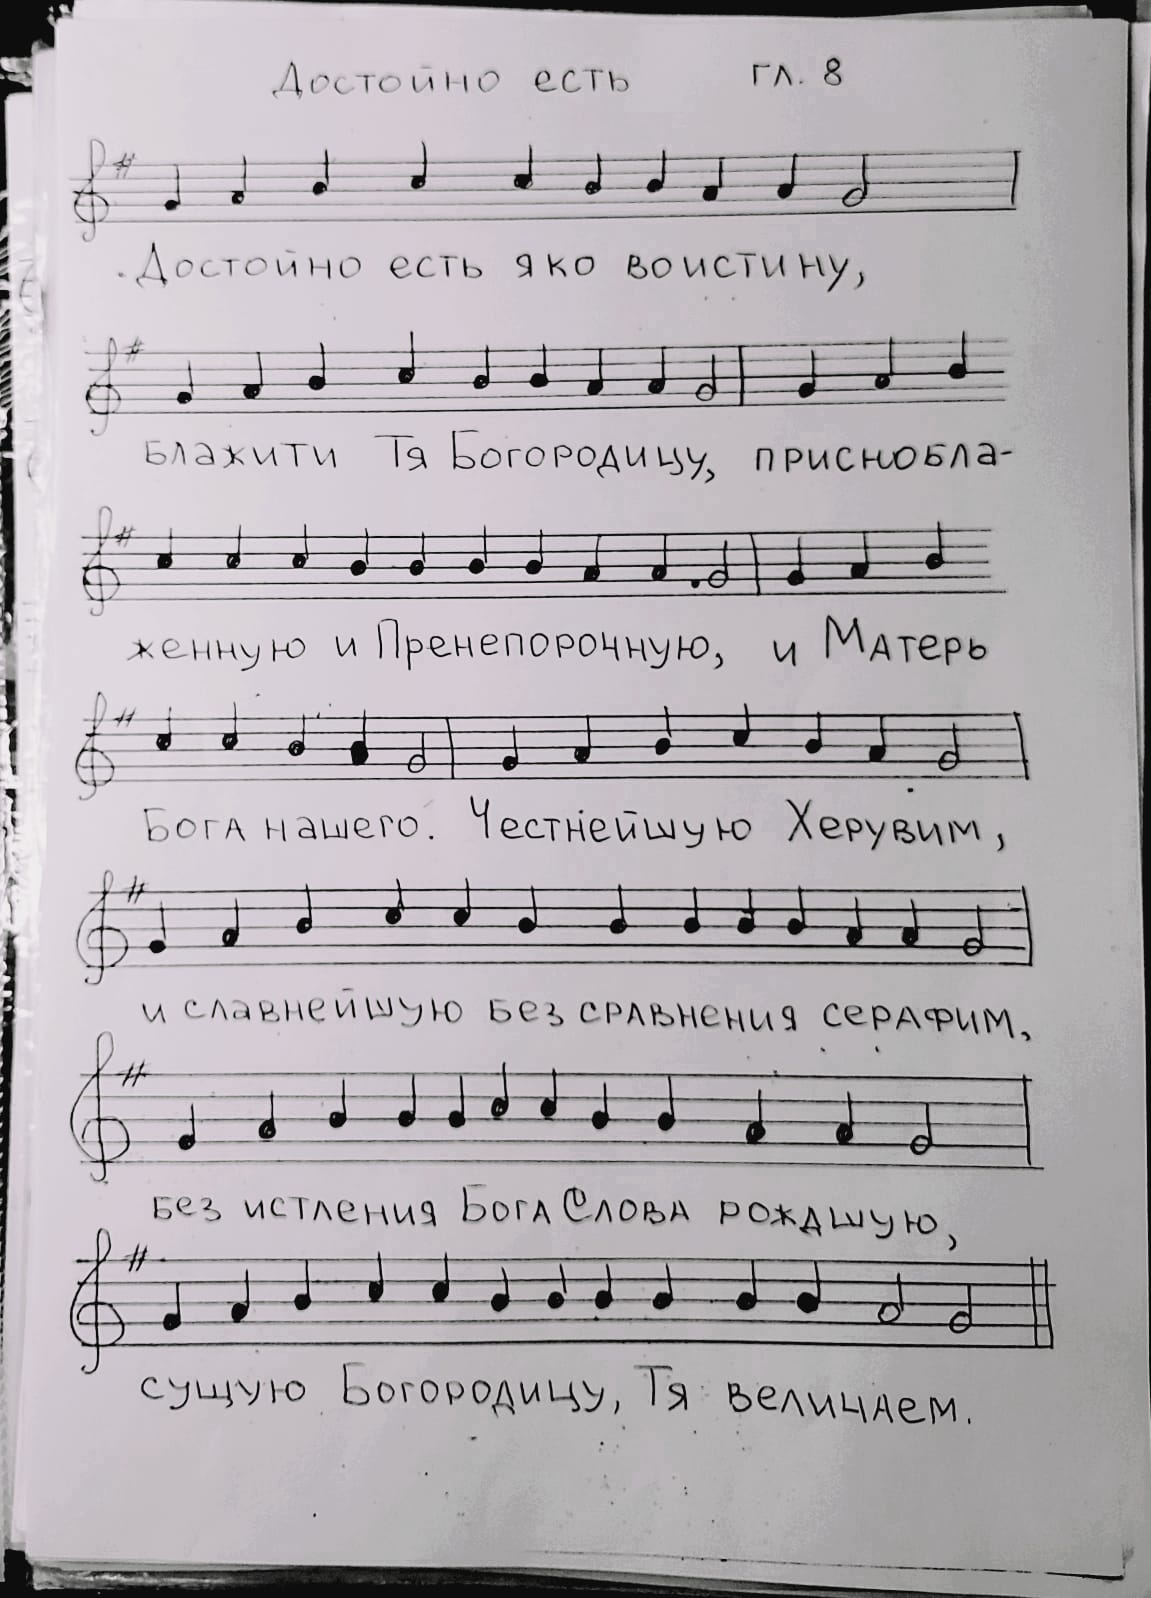 Достойно есть гл. 8
Достойно есть яко воистину,
блажити Тя Богородицу, приснобла-
женную и Пренепорочную, и Матерь
Бога нашего. Честнейшую Херувим,
и славнейшую без сравнения серафим,
без истления Бога Слова рождшую,
сущую Богородицу, Тя величаем.